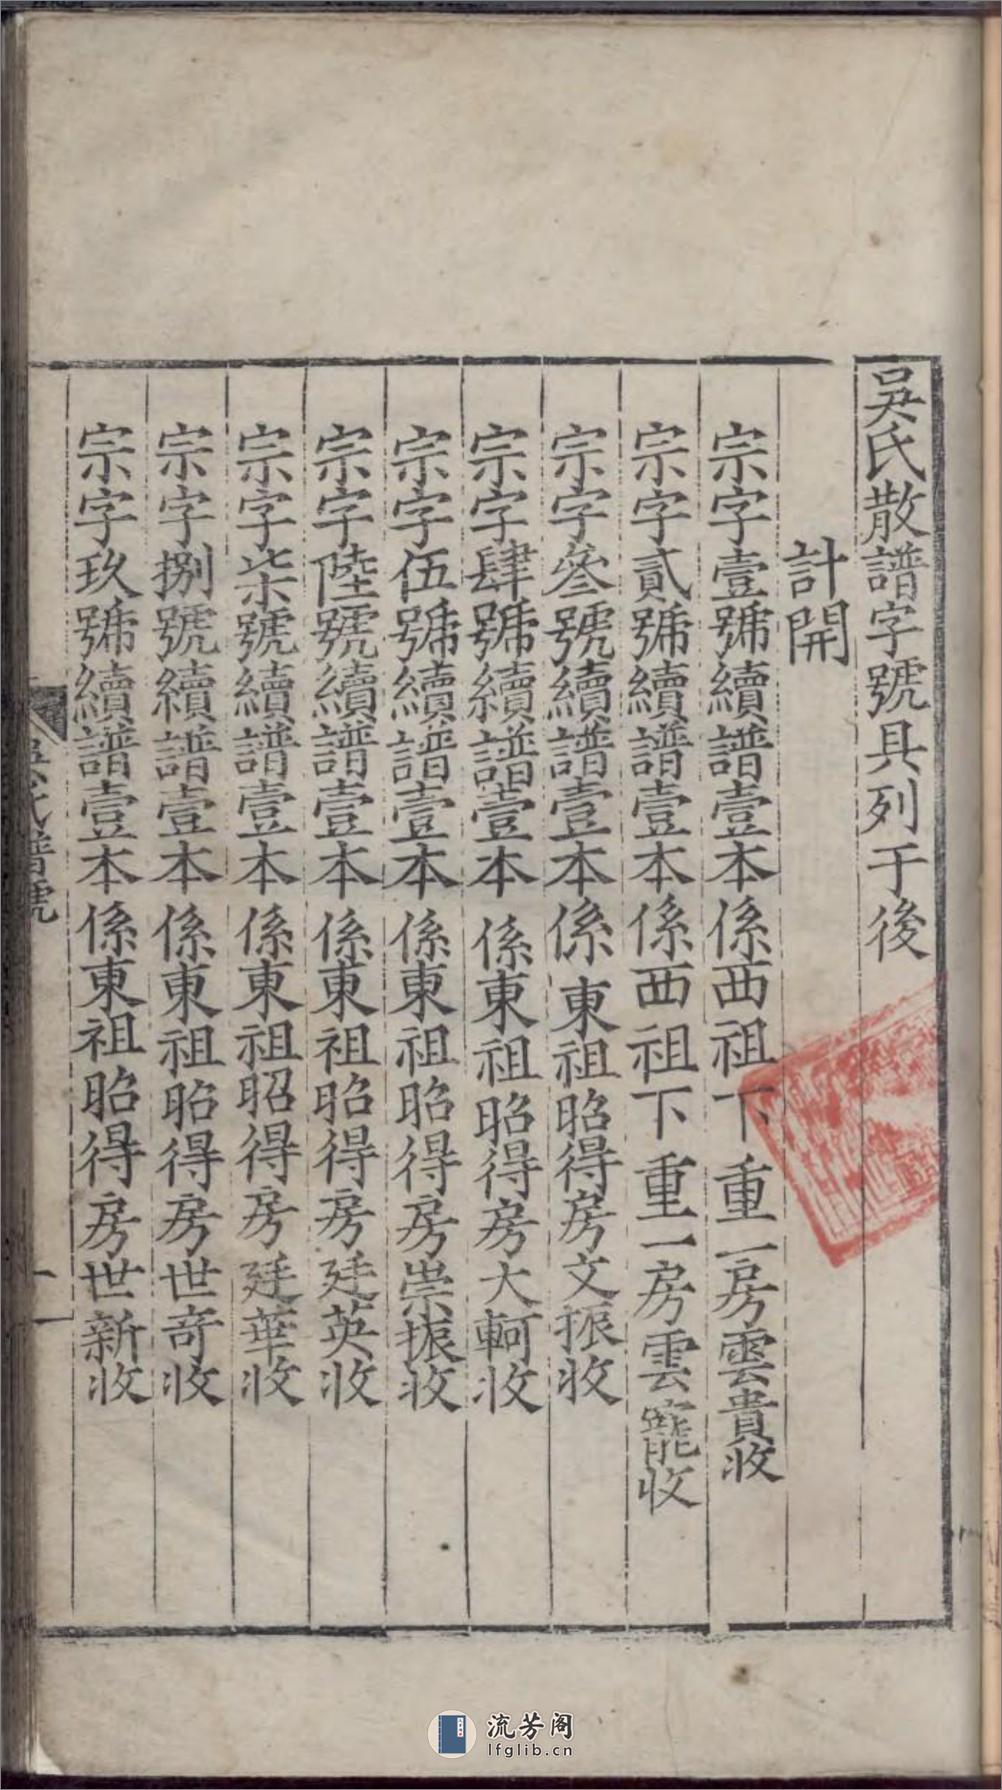 吳氏散譜字號具列于後
計開
宗字壹號續譜壹本係西祖下重一房雲貴收
宗字貳號續譜壹本係西祖下重一房雲寵收
宗字叄號續譜壹本係東祖昭得房文振收
宗字肆號續譜壹本係東祖昭得房大軻收
宗字伍號續譜壹本係東祖昭得房崇振收
宗字陸號續譜壹本係東祖昭得房廷英收
宗字柒號續譜壹本係東祖昭得房廷華收
宗字捌號續譜壹本係東祖昭得房世奇收
宗字玖號續譜壹本係東祖昭得房世新收
吳氏譜號
流芳阁
lfglib.cn